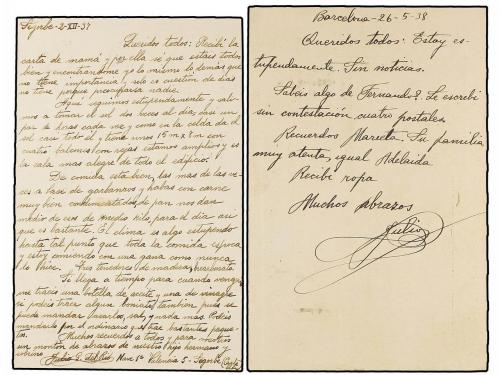 Segorbe - 2-XII-37
Queridos todos: Recibí la
carta de mamá y por ella sé que estáis todos
bien y encontrándome yo lo mismo lo demás que
no tiene importancia, sólo es cuestión de días
no tiene porque preocuparse nadie.
Aquí seguimos estupendamente y salimos
a tomar el sol dos horas al día, dos un
par de horas cada vez y como en la celda da el
sol casi todo el y tiene unos 15 m x 8 m con
cuatro balcones con rejas estamos amplios y es
la sala mas alegre de todo el edificio.
De comida esta bien, las mas de las veces
a base de garbanzos y habas con carne
muy bien condimentados, de pan nos dan
medio de os de medio kilo, para el día así
que es bastante. El clima es algo estupendo
hasta tal punto que toda la comida es poca
y estoy comiendo con una gana como nunca
lo hice. tenedores de madera, bicarbonato
Si llega a tiempo para cuando venga
me traeis una botella de aceite y una de vinagre
si podeis traer algun boniato, tambien pues se
puede mandar asarlos, sal, y nada mas. Podeis
mandarlo por el ordinario que trae bastantes paquetes.
Muchos recuerdos a todos y para vosotros
un montón de abrazos de vuestro hijo hermano y
sobrino Julio G. del Río, Nave 5ª Valencia 5 - Segorbe
Barcelona - 26-5-38
Queridos todos: Estoy es-
tupendamente. Sin noticias.
Sabeis algo de Fernando? Le escribí
sin contestación cuatro postales
Recuerdos Marieta. Su familia
muy atenta, igual Adelaida
Recibí ropa
Muchos abrazos
Julio